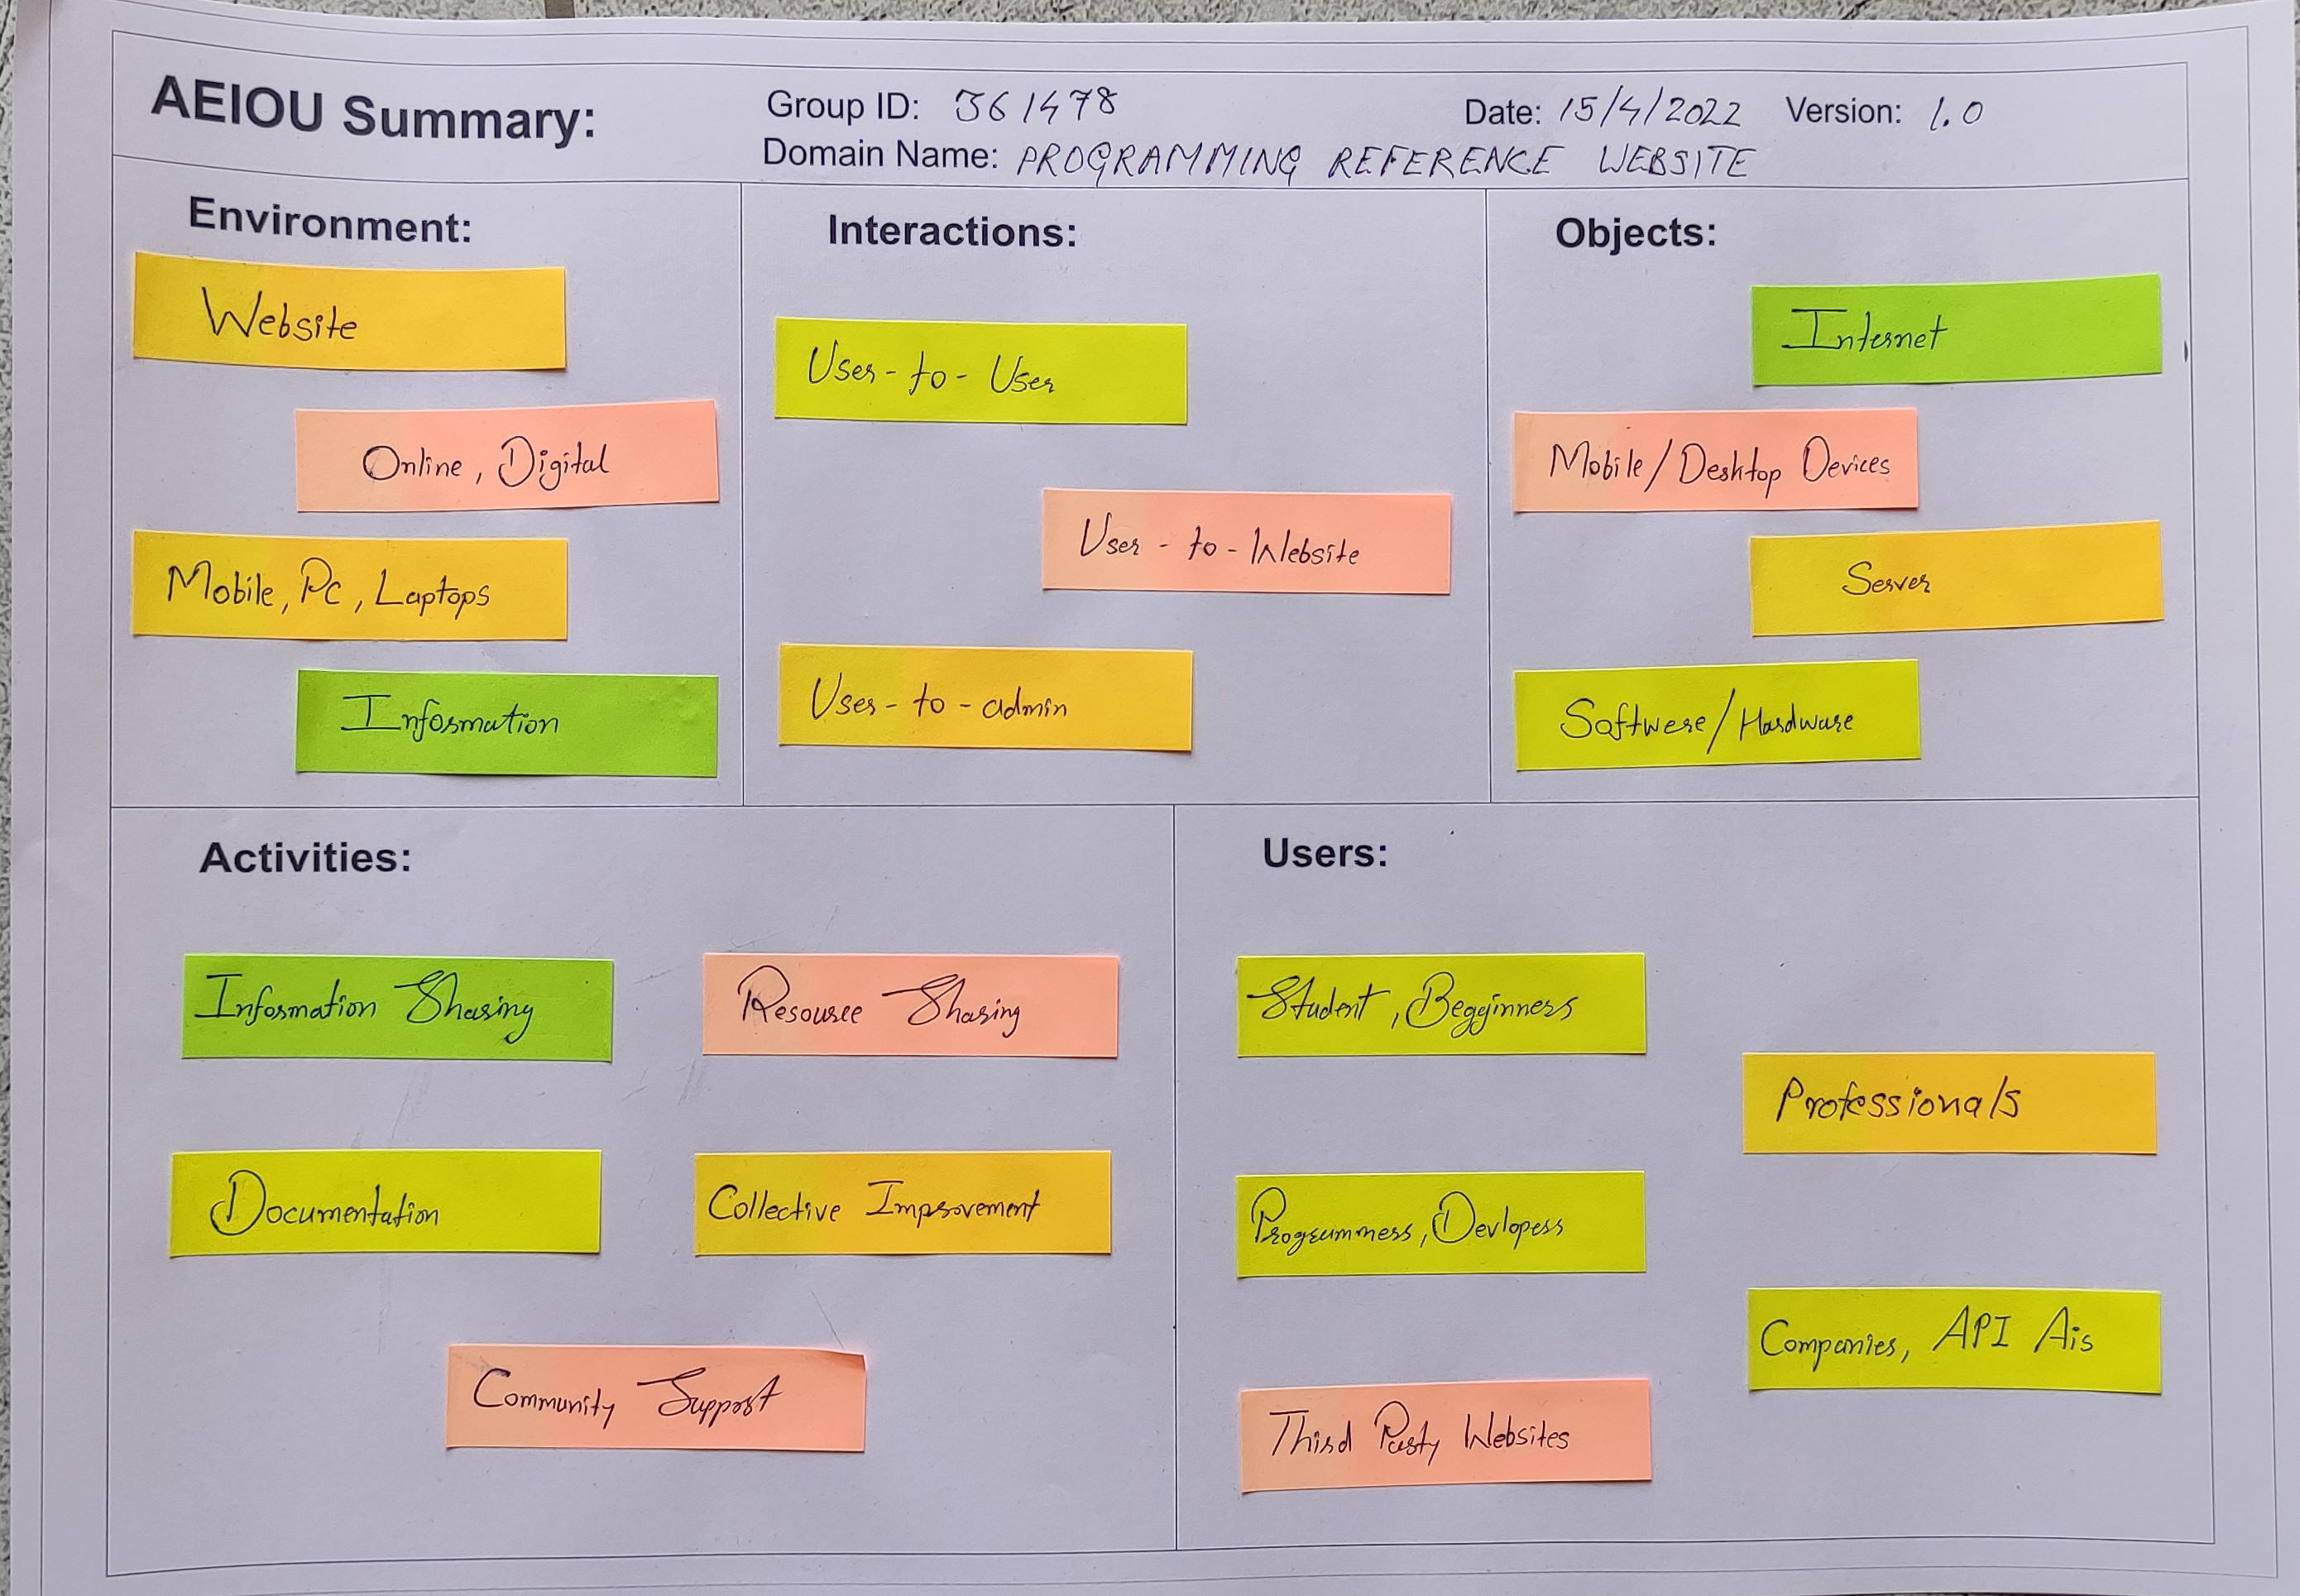 AEIOU Summary:
Group ID: 361478
Date: 15/4/2022 Version: 1.0
Domain Name: PROGRAMMING REFERENCE WEBSITE
Environment:
Website
Online, Digital
Mobile, Pc, Laptops
Information
Interactions:
User-to-User
User-to-Website
User-to-admin
Objects:
Internet
Mobile/Desktop Devices
Server
Softwere/Hardware
Activities:
Information Sharing
Resource Sharing
Documentation
Collective Improvement
Community Support
Users:
Student, Begginners
Professionals
Programmers, Devlopers
Companies, API Ais
Third Party Websites